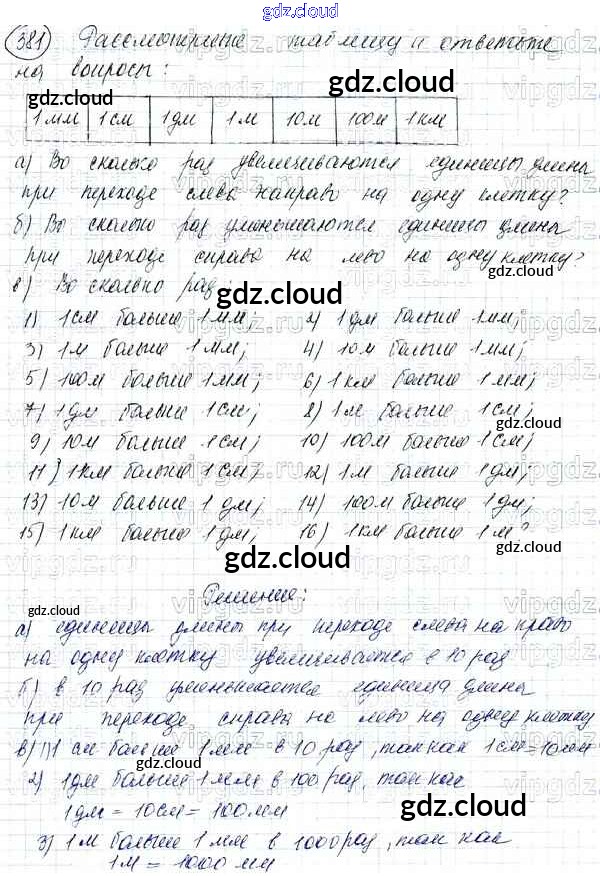 gdz.cloud
381 Рассмотрите таблицу и ответьте
на вопросы:
gdz.cloud
gdz.cloud
1мм 1см 1дм 1м 10м 100м 1км
а) Во сколько раз увеличиваются единицы длины
при переходе слева направо на одну клетку?
б) Во сколько раз уменьшаются единицы длины
при переходе справа на лево на одну клетку?
в) Во сколько раз
gdz.cloud
gdz.cloud
1) 1см больше 1мм; 2) 1дм больше 1мм;
3) 1м больше 1мм; 4) 10м больше 1мм;
5) 100м больше 1мм; 6) 1км больше 1мм;
7) 1дм больше 1см; 8) 1м больше 1см;
gdz.cloud
9) 10м больше 1см; 10) 100м больше 1см;
11) 1км больше 1см; 12) 1м больше 1дм;
13) 10м больше 1дм; 14) 100м больше 1дм;
15) 1км больше 1дм; 16) 1км больше 1м?
gdz.cloud
gdz.cloud
Решение:
gdz.cloud
а) единицы длины при переходе слева на право
на одну клетку увеличивается в 10 раз
б) в 10 раз уменьшается единица длины
при переходе справа на лево на одну клетку
в) 1) 1 см больше 1мм в 10 раз, так как 1см=10мм
2) 1дм больше 1мм в 100 раз, так как
1дм = 10см = 100мм
gdz.cloud
3) 1м больше 1мм в 1000 раз, так как
1м = 1000 мм
gdz.cloud